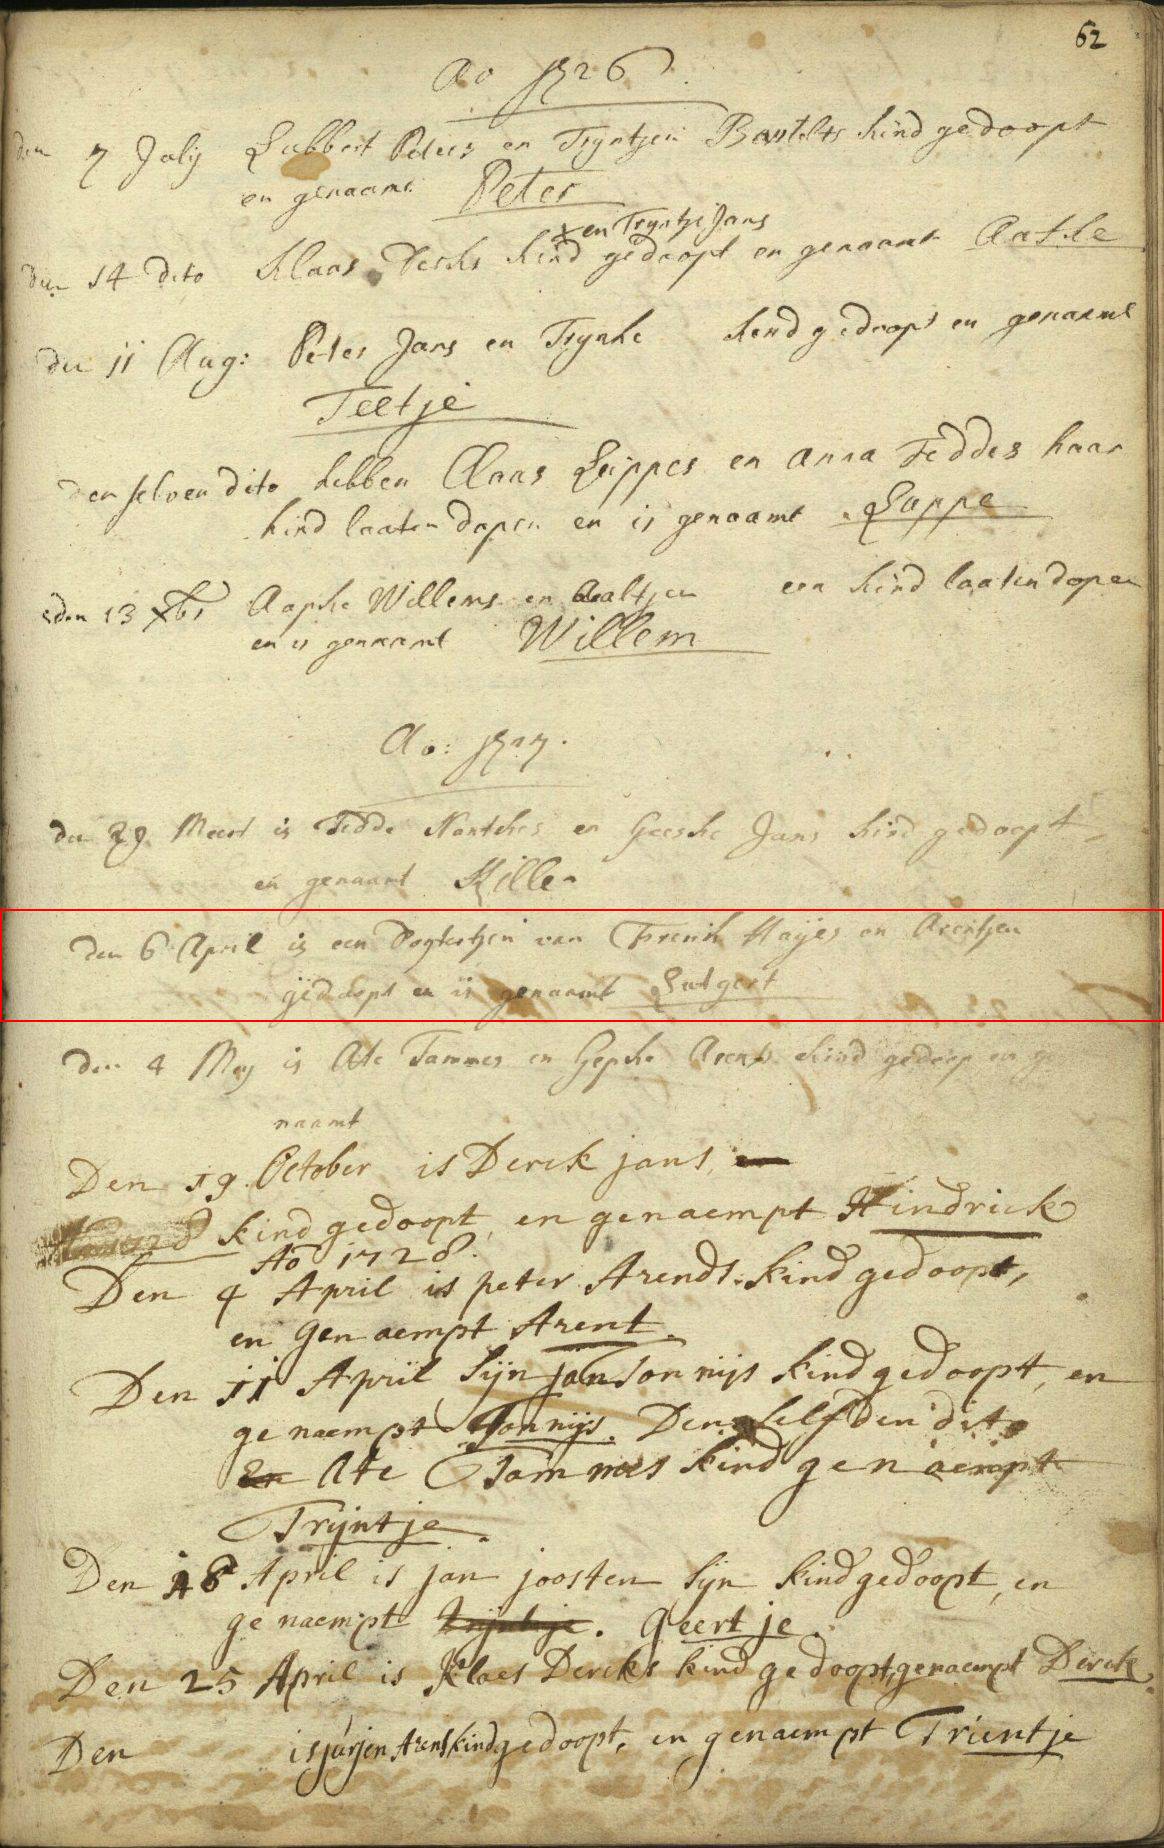 62
Ao 1726
den 7 July Lubbert Peters en Tryntjen Bartelts kind gedoopt
en genaamt Peter
x en Tryntje Jans
den 14 dito Klaas Derks kind gedoopt en genaamt
den 11 Aug: Peter Jans en Trynke kind gedoopt en genaamt
Teetje
den selven dito hebben Claas Luppes en Anna Feddes haar
kind laaten dopen en is genaamt Luppe
den 13 Xbr Aapke Willems en Aaltjen een kind laaten dopen
en is genaamt Willem
Ao: 1727.
den 29 Meert is Fedde en Geeske Jans kind gedoopt
en genaamt
den 6 April is een Dogtertjen van Frerik Hayes en Arentjen
gedoopt en is genaamt Lutgert
den 4 May is Ate Tammes en Gepke Arents kind gedoop en ge
naamt
Den 19 October is Derck jans
kind gedoopt, en genaempt Hindrick
Ao 1728.
Den 4 April is peter Arends kind gedoopt,
en Genaempt Arent.
Den 11 April Sijn jan Tonnijs kind gedoopt, en
genaempt Tonnijs. Den selfden dito
Ate Tammes kind genaempt
Trijntje.
Den 18 April is jan joosten Sijn kind gedoopt, en
genaempt Geertje.
Den 25 April is Klaes Dercks kind gedoopt, genaempt Derck.
Den is jurjen Arens kind gedoopt, en genaempt Trientje